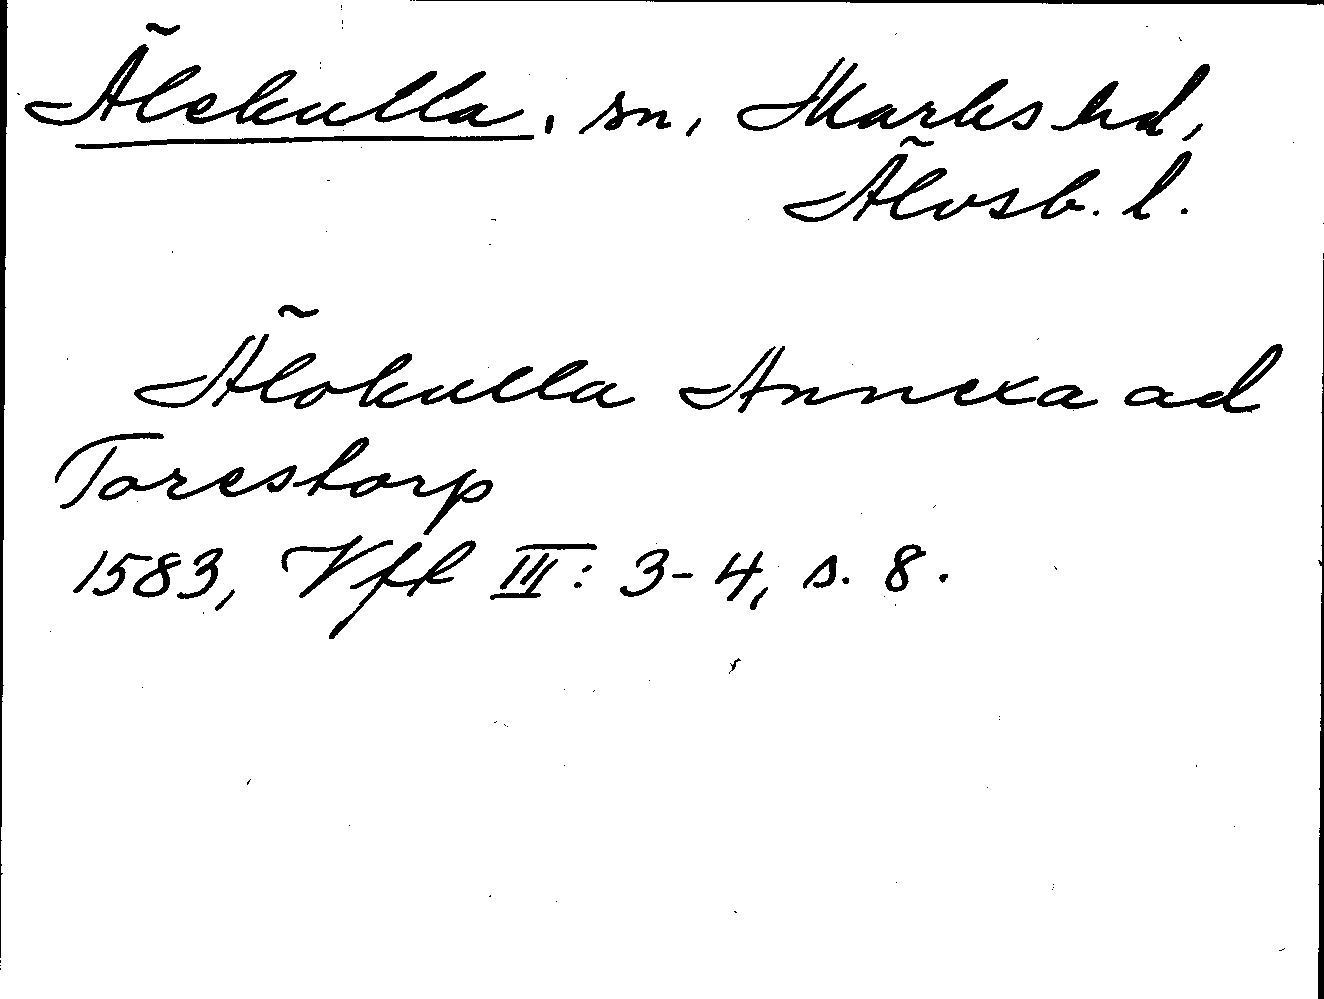 Älekulla, sn, Marks hd,
Älvsb. l.
Älokulla Annexa ad
Torestorp
1583, Vfl III: 3-4, s. 8.